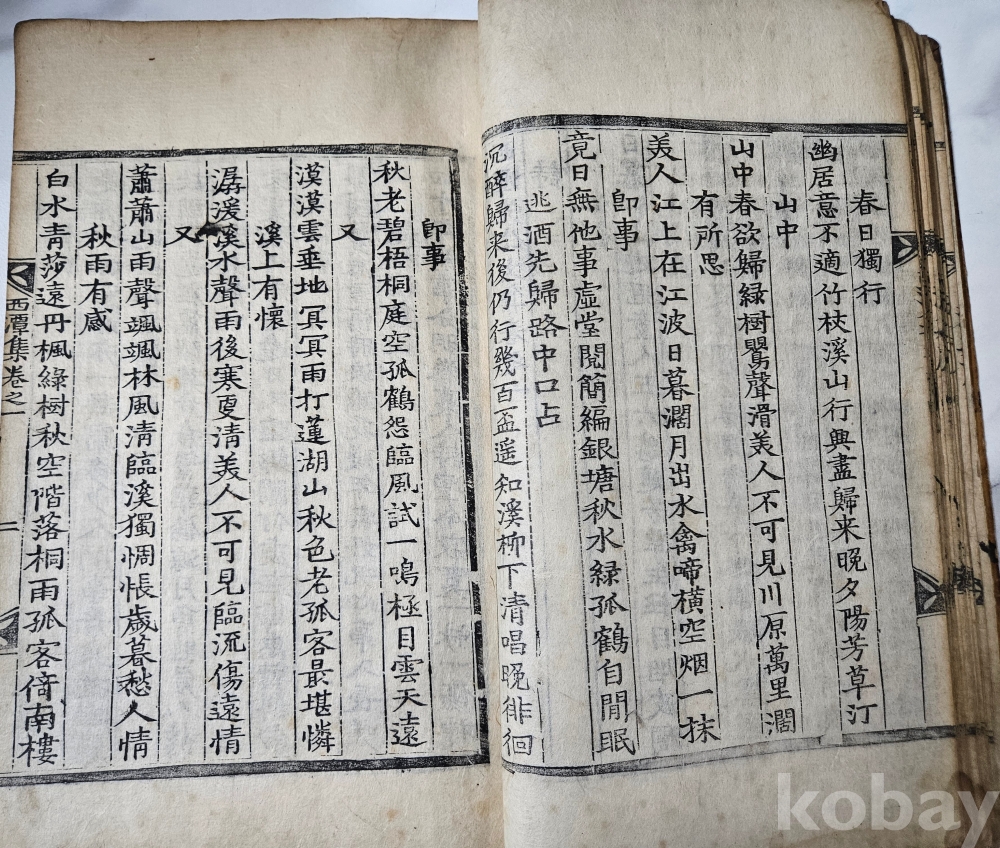 春日獨行
幽居意不適竹杖溪山行興盡歸来晩夕陽芳草汀
山中
山中春欲歸綠樹鸎聲滑美人不可見川原萬里濶
有所思
美人江上在江波日暮濶月出水禽啼橫空烟一抹
卽事
竟日無他事虛堂閱簡編銀塘秋水綠孤鶴自閒眠
逃酒先歸路中口占
沉醉歸来後仍行幾百盃遥知溪柳下清唱晩徘徊
卽事
秋老碧梧桐庭空孤鶴怨臨風試一鳴極目雲天遠
又
漠漠雲垂地冥冥雨打蓮湖山秋色老孤客最堪憐
溪上有懷
潺湲溪水聲雨後寒更清美人不可見臨流傷遠情
又
蕭蕭山雨聲颯颯林風清臨溪獨惆悵歲暮愁人情
秋雨有感
白水青莎遠丹楓綠樹秋空階落桐雨孤客倚南樓
西潭集卷之一
二
kobay